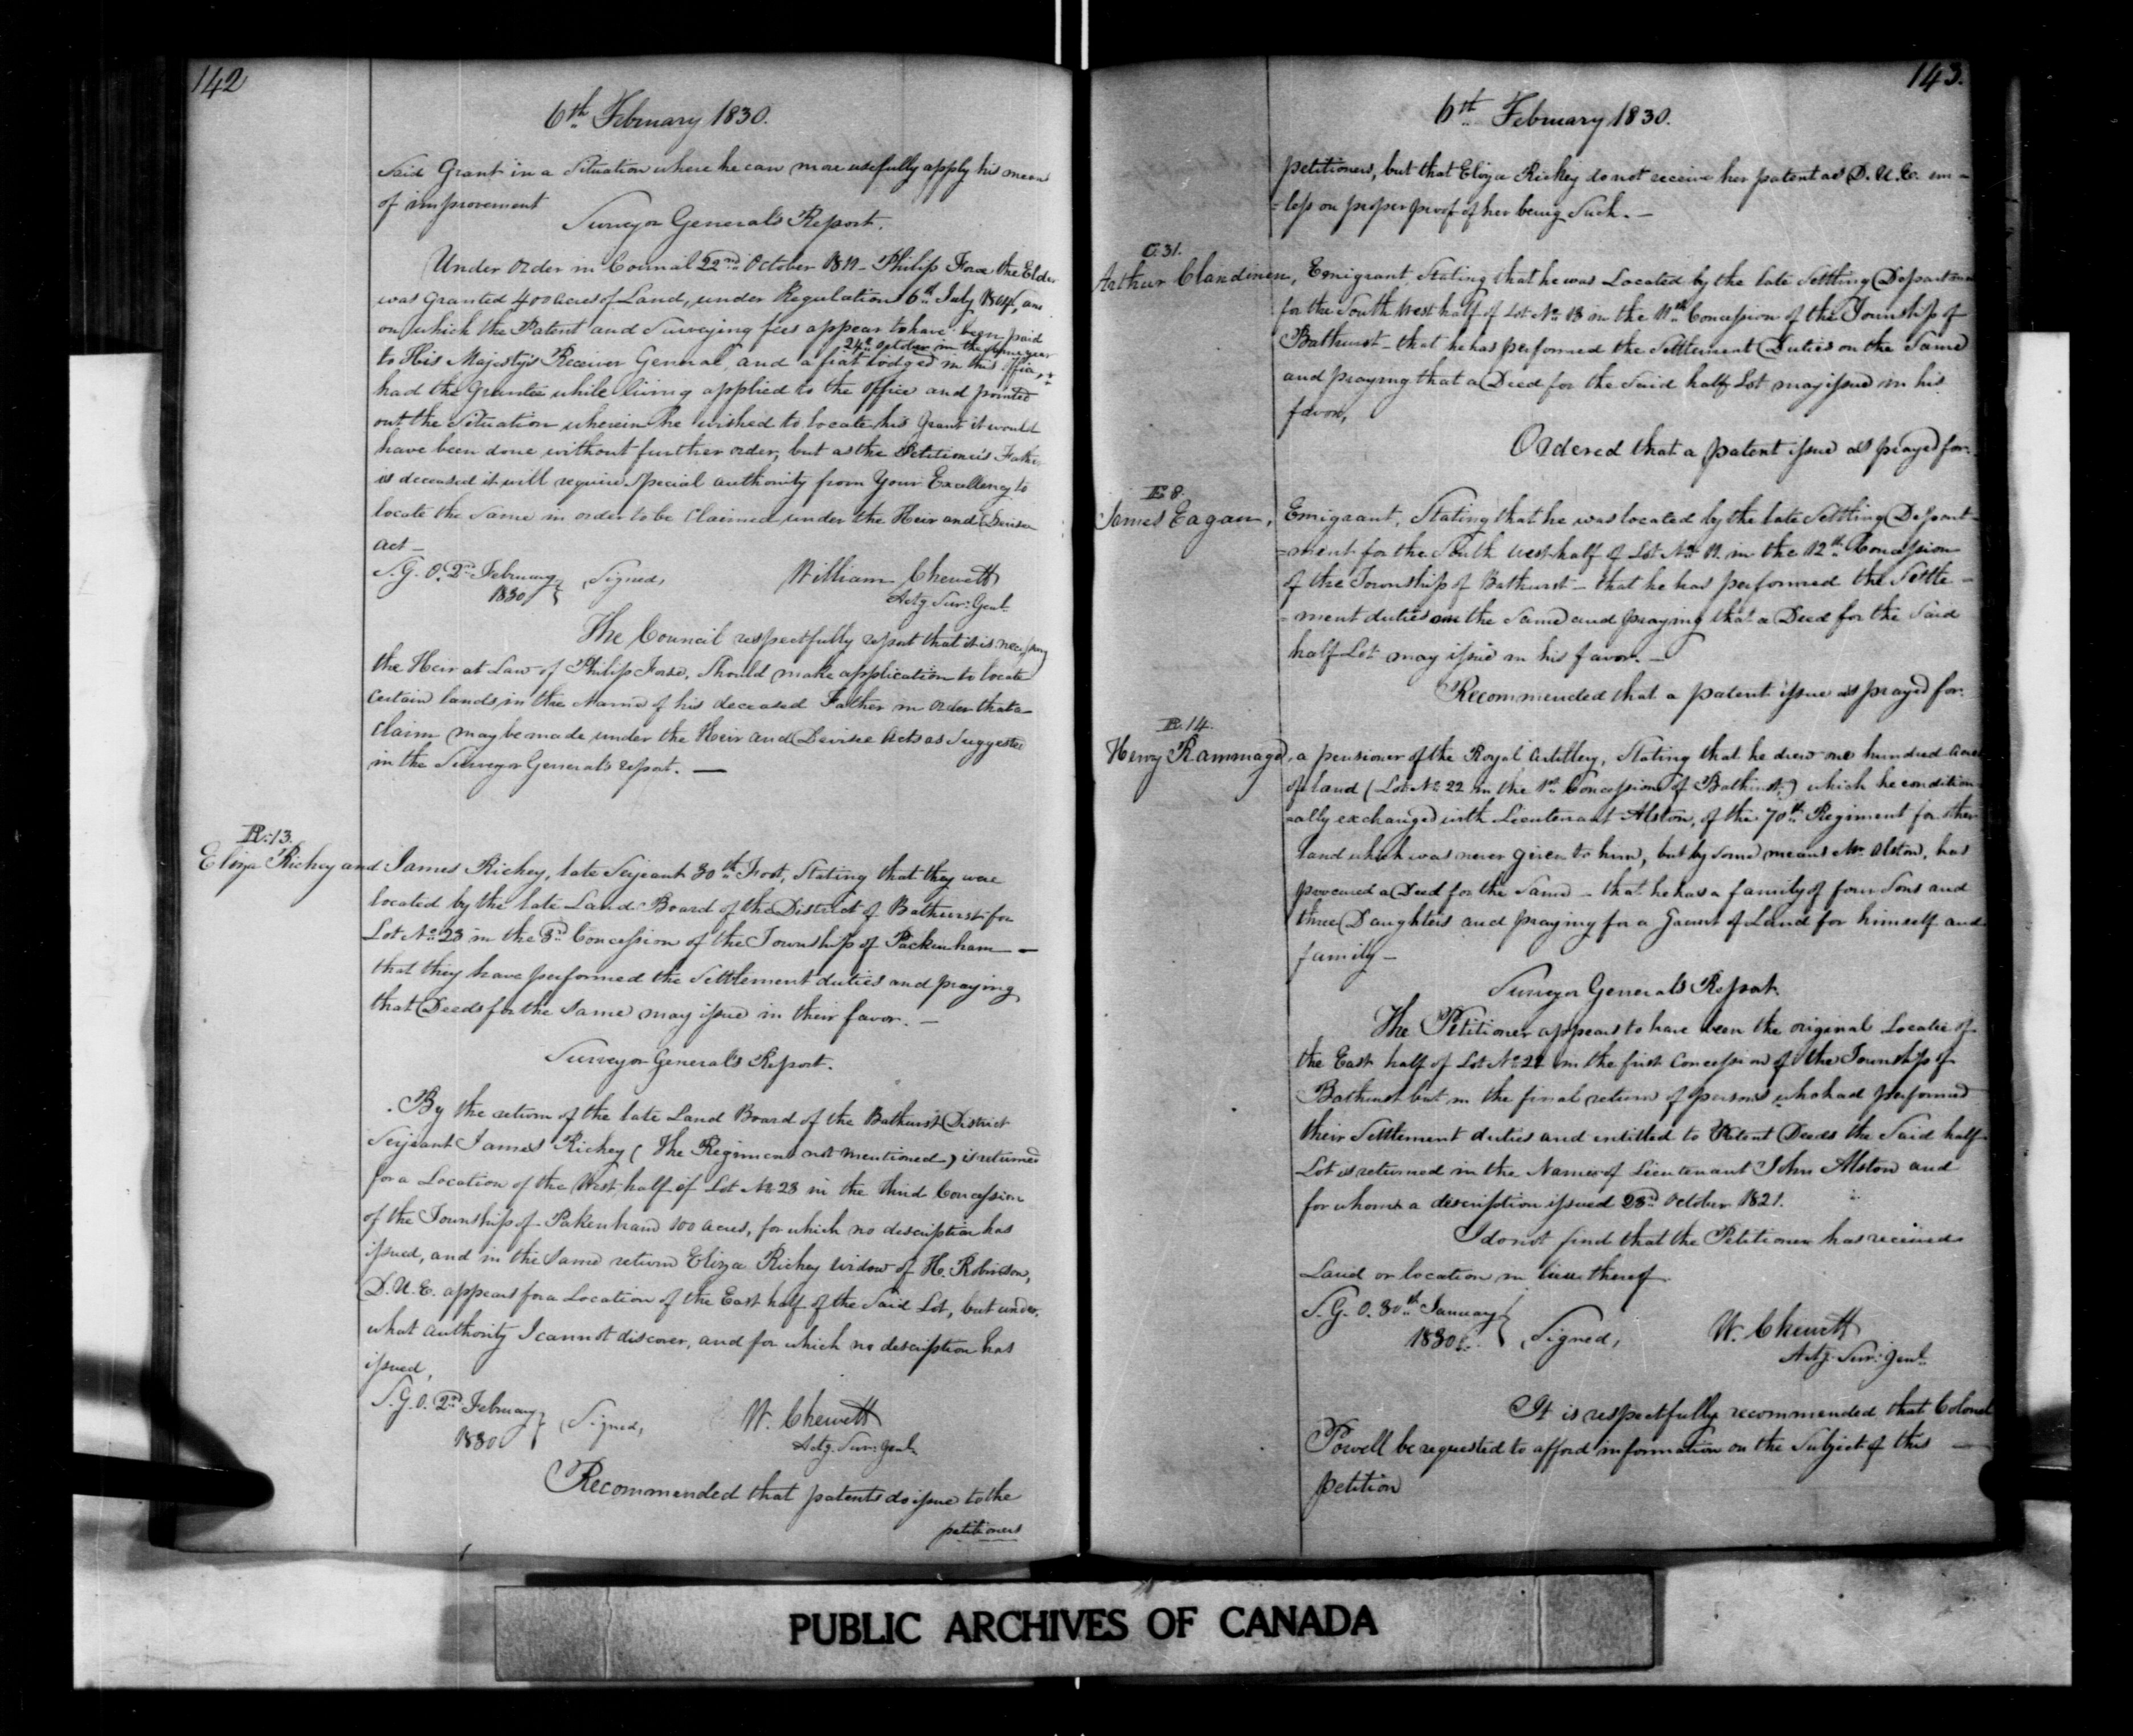 142
6th February 1830.
Said Grant in a Situation where he can more usefully apply his means
of improvement
Surveyor General's Report.
Under Order in Council 22nd October 1811 - Philip Force the Elder
was granted 400 acres of Land, under Regulation 6th July 1804, and
on which the Patent and Surveying fees appear to have been paid
24th October in the same year
to His Majesty's Receiver General, and a fiat lodged in this Office, &
had the Grantee while living applied to the Office and pointed
out the Situation wherein he wished to locate his Grant it would
have been done without further order, but as the Petitioner's Father
is deceased it will require special authority from Your Excellency to
locate the same in order to be Claimed under the Heir and Devisee
Act -
S. G. O. 2nd February 1830 } Signed, William Chewett
Actg. Sur: Genl.
The Council respectfully report that it is necessary
the Heir at Law of Philip Force, Should make application to locate
Certain lands in the Name of his deceased Father in Order that a
Claim may be made under the Heir and Devisee Acts as Suggested
in the Surveyor General's report. —
R: 13.
Eliza Richey and James Richey, late Serjeant 30th Foot, Stating that they were
located by the late Land Board of the District of Bathurst for
Lot No 23 in the 3d Concession of the Township of Packenham —
that they have performed the Settlement duties and praying
that Deeds for the Same may issue in their favor. —
Surveyor General's Report.
By the return of the late Land Board of the Bathurst District
Serjeant James Richey (the Regiment not mentioned) is returned
for a Location of the West half of Lot No 23 in the third Concession
of the Township of Pakenham 100 acres, for which no description has
issued, and in the Same return Eliza Richey widow of H. Robinson,
D. U. E. appears for a Location of the East half of the Said Lot, but under
what authority I cannot discover, and for which no description has
issued,
S. G. O. 2nd February 1830 } Signed, W. Chewett
Actg. Sur: Genl.
Recommended that patents do issue to the
petitioners
143.
6th February 1830.
petitioners, but that Eliza Richey do not receive her patent as D. U. E. un-
=less on proper proof of her being Such. —
C. 31.
Arthur Clandinen, Emigrant, Stating that he was Located by the late Settling Department
for the South West half of Lot No 13 in the 11th Concession of the Township of
Bathurst - that he has performed the Settlement Duties on the Same
and praying that a Deed for the Said half Lot may issue in his
favor,
Ordered that a patent issue as prayed for.
E 8.
James Eagan, Emigrant, Stating that he was located by the late Settling Depart-
=ment for the South West half of Lot No 11. in the 12th Concession
of the Township of Bathurst - that he has performed the Settle-
=ment duties on the Same and praying that a Deed for the Said
half Lot may issue in his favor. —
Recommended that a patent issue as prayed for.
R. 14.
Henry Rammage, a pensioner of the Royal Artillery, Stating that he drew one hundred acres
of land (Lot No 22 in the 1st Concession of Bathurst,) which he condition
=ally exchanged with Lieutenant Alston, of the 70th Regiment for other
land which was never given to him, but by some means Mr Alston, has
procured a Deed for the Same - that he has a family of four Sons and
three Daughters and praying for a Grant of Land for himself and
family -
Surveyor General's Report.
The Petitioner appears to have been the original Locatee of
the East half of Lot No 22 in the first Concession of the Township of
Bathurst but in the final return of persons who had performed
their Settlement duties and entitled to Patent Deeds the Said half
Lot is returned in the Name of Lieutenant John Alston and
for whom a description issued 23d October 1821.
I do not find that the Petitioner has received
Land or location in lieu thereof
S. G. O. 30th January 1830 } Signed, W. Chewett
Actg. Sur: Genl.
It is respectfully recommended that Colonel
Powell be requested to afford information on the Subject of this —
petition
PUBLIC ARCHIVES OF CANADA